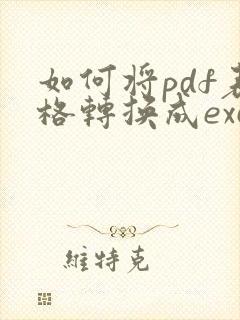 如何將pdf表
格轉換成exc
維特克